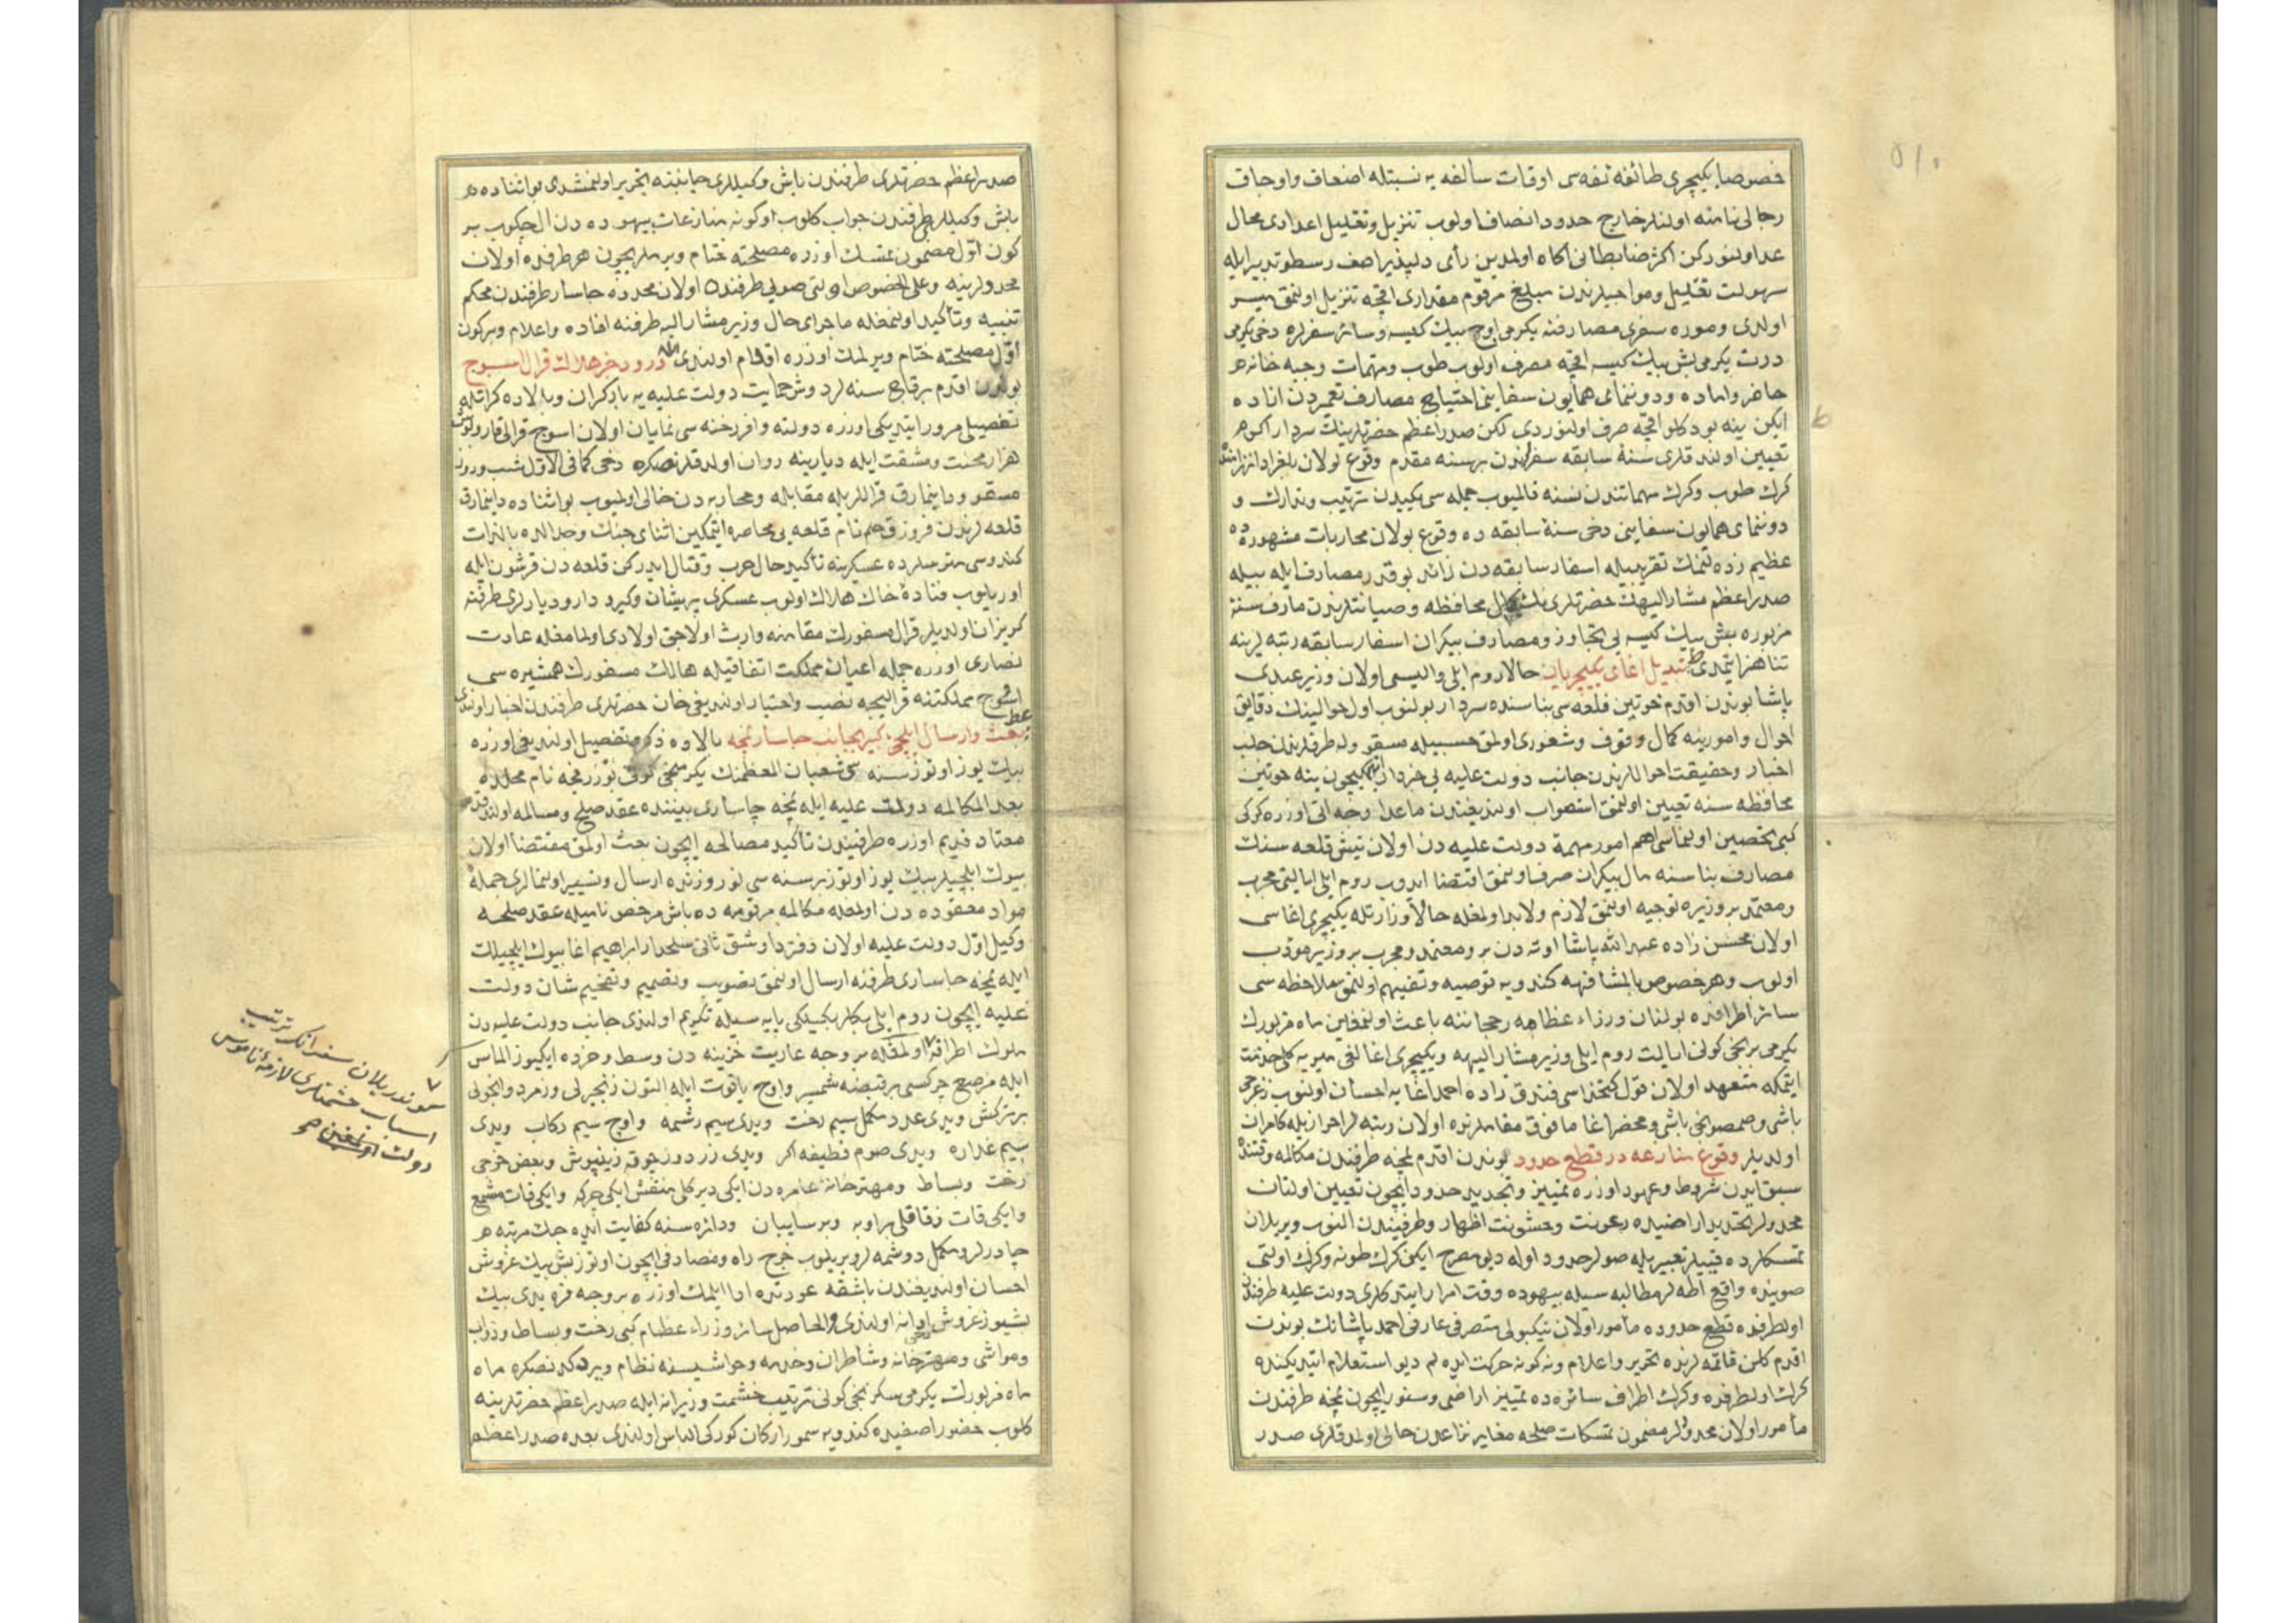 خصوصا یکیچری طائفه نفه سی اوقات سالفه یه نسبتله اضعاف واوجاق
رجالی نامنه اولنلر خارج حدود انصاف اولوب تنزیل وتقلیل اعدادی محال
عد اولنورکن اکثر ضابطانی آکاه اولمدین رأی دلپذیر اصف رسطو تدبیر ایله
سهولت تقلیل ومواجبلرندن مبلغ مرقوم مقداری اقچه تنزیل اولنمق میسر
اولدی وموره سفری مصارفنه یکرمی اوچ بیك کیسه وسائر سفرلره دخی یکرمی
درت یکرمی بش بیك کیسه اقچه مصرف اولوب طوب ومهمات وجبه خانه
حاضر واماده ودوننمای همایون سفاینی احتیاج مصارف تعمیردن ازاده
ایکن ینه بودکلو اقچه صرف اولنوردی لکن صدر اعظم حضرتلرینك سردار اکرم
تعیین اولندقلری سنهٔ سابقه سفرندن بر سنه مقدم وقوع بولان بلغراد
کرك طوب وکرك مهماتندن نسنه قالمیوب جمله سی یکیدن ترتیب وتدارك و
دوننمای همایون سفاینی دخی سنهٔ سابقه ده وقوع بولان محاربات مشهوره ده
عظیم زده لنمك تقریبیله اسفار سابقه دن زائد بوقدر مصارف ایله بیله
صدر اعظم مشار الیهك حضرتلری نك کمال محافظه وصیانتلرندن مارف سنهٔ
مزبوره بش بیك کیسه یی تجاوز ومصارف بیکران اسفار سابقه رتبه لرینه
تناهز ایتمدی تبدیل اغای یکیچریان حالا روم ایلی والیسی اولان وزیر عبدی
پاشا بوندن اقدم خوتین قلعه سی بناسنده سردار بولنوب اول حوالینك دقایق
احوال وامورینه کمال وقوف وشعوری اولمق حسبیله مسقو وله طرفلرندن جلب
اخبار وحقیقت احواللرندن جانب دولت علیه یی خبردار ایتمکیچون ینه خوتین
محافظه سنه تعیین اولنمق استصواب اولندیغندن ماعدا وجه اتی اوزره کرکی
کبی تحصین اولنماسی اهم امور مهمهٔ دولت علیه دن اولان نیش قلعه سنك
مصارف بناسنه مال بیکران صرف اولنمق اقتضا ایدوب روم ایلی ایالتی مجرب
ومعتمد بر وزیره توجیه اولنمق لازم ولابد اولمغله حالا وزارتله یکیچری اغاسی
اولان محسن زاده عبد الله پاشا اوته دن برو معتمد ومجرب بر وزیر مودب
اولوب وهر خصوص بالمشافهه کندویه توصیه وتفهیم اولنمق ملاحظه سی
سائر اطرافده بولنان وزراء عظامه رجحاننه باعث اولنمغین ماه مزبورك
یکرمی برنجی کونی ایالت روم ایلی وزیر مشار الیهه ویکیچری اغالغی میریه کلی خدمت
ایتمکه متعهد اولان قول کتخداسی فندق زاده احمد اغایه احسان اولنوب زغرجی
باشی وصمصونجی باشی ومحضر اغا مافوق مقاملرنده اولان رتبه لر احرازیله کامران
اولدیلر وقوع منازعه در قطع حدود بوندن اقدم نمچه طرفندن مکالمه وقتنده
سبق ایدن شروط وعهود اوزره تمییز وتجدید حدود ایچون تعیین اولنان
محدولر تحدید اراضیده رعونت وخشونت اظهار وطرفیندن النوب ویریلان
تمسکلرده قنبیلر تعبیریله صولر حدود اوله دیو مصرح ایکن کرك طونه وکرك اولتی
صوینده واقع اطه لر مطالبه سیله بیهوده وقت امرار ایتدکلری دولت علیه طرفندن
اولطرفده قطع حدوده مأمور اولان نیکبولی متصرفی عارفی احمد پاشانك بوندن
اقدم کلن قائمه لرنده تحریر واعلام ونه کونه حرکت ایده لم دیو استعلام ایتدیکنده
کرك اولطرفده وکرك اطراف سائره ده تمییز اراضی وسنور ایچون نمچه طرفندن
مأمور اولان محدولر مضمون تمسکات صلحه مغایر نزاعدن خالی اولمدقلری صدر
صدر اعظم حضرتلری طرفندن باش وکیللری جانبنه تحریر اولنمشدی بو اثناده
باش وکیللر طرفندن جواب کلوب اوکونه منازعات بیهوده دن ال چکوب بر
کون اول مضمون تمسك اوزره مصلحته ختام ویرملریچون هر طرفده اولان
محدولرینه وعلی الخصوص اولتی صویی طرفنده اولان محدده جاسار طرفندن محکم
تنبیه وتأکید اولنمغله ماجرای حال وزیر مشار الیه طرفنه افاده واعلام وبر کون
اول مصلحته ختام ویرلمك اوزره اقدام اولندی ورود خبر هلاك قرال اسوج
بوندن اقدم برقاچ سنه لر دوش حمایت دولت علیه یه بار کران وبالاده کراتله
تفصیلی مرور ایتدیکی اوزره دولته وافر رخنه سی نمایان اولان اسوج قرالی قارولوش
هزار محنت ومشقت ایله دیارینه روان اولدقلرنصکره دخی کما فی الاول شب وروز
مسقو ودانیمارق قراللریله مقابله ومحاربه دن خالی اولمیوب بو اثناده دانیمارق
قلعه لرندن نام قلعه یی محاصره ایتمکین اثنای جنك وجدالده بالذات
کندوسی متریسلرده عسکرینه تأکید حال حرب وقتال ایدرکن قلعه دن قرشون ایله
اوریلوب فتادهٔ خاك هلاك اولوب عسکری پریشان وکیرو دار ودیارلری طرفنه
کریزان اولدیلر قرال مسفورك مقامنه وارث اولاجق اولادی اولمامغله عادت
نصاری اوزره جمله اعیان مملکت اتفاقیله هالك مسفورك همشیره سی
اسوج مملکتنه قرالیچه نصب واختیار اولندیغی خان حضرتلری طرفندن اخبار اولندی
بعث وارسال ایلچی کبیر بجانب جاسار نمچه بالاده ذکر وتفصیل اولندیغی اوزره
بیك یوز اوتوز سنه سی شعبان المعظمنك یکرمنجی کونی نام محلده
بعد المکالمه دولت علیه ایله نمچه چاساری بیننده عقد صلح ومسالمه اولندقده
معتاد قدیم اوزره طرفیندن تأکید مصالحه ایچون بعث اولمق مقتضا اولان
بیوك ایلچیلر بیك یوز اوتوز بر سنه سی نوروزنده ارسال وتسییر اولنمالری جمله
مواد معقوده دن اولمغله مکالمه مرقومه ده باش مرخص نامیله عقد صلحه
وکیل اول دولت علیه اولان دفتردار شق ثانی سلحدار ابراهیم اغا بیوك ایلچیلك
ایله نمچه جاساری طرفنه ارسال اولنمق تصویب وتصمیم وتفخیم شان دولت
علیه ایچون روم ایلی بکلربکیلکی پایه سیله تکریم اولندی جانب دولت علیه دن
ملوك اطرافه بر وجه عاریت خزینه دن وسط وخرده ایکیوز الماس
ایله مرصع چرکسی بر قبضه شمشیر واوچ یاقوت ایله التون زنجیرلی وزمرد وانجولی
بر ترکش ویدی عدد مکمل سیم رخت ویدی سیم رشمه واوچ سیم رکاب ویدی
سیم غداره ویدی صوم قطیفه اکر ویدی زردوز چوقه زینپوش وبعض خرجی
رخت وبساط ومهترخانهٔ عامره دن ایکی دیرکلی منقش ایکی چرکه وایکی قات مشمع
وایکی قات زقاقلی براوبه وبر سایبان ودائره سنه کفایت ایده جك مرتبه
چادرلر ومکمل دوشمه لر ویریلوب خرج راه ومصارفی ایچون اوتوز بش بیك غروش
احسان اولندیغندن باشقه عودتنده ادا ایلمك اوزره بر وجه قرض یدی بیك
بشیوز غروش ادانه اولندی والحاصل سائر وزراء عظام کبی رخت وبساط ودواب
ومواشی ومهترخانه وشاطران وخدمه وحواشیسنه نظام ویردکدنصکره ماه
ماه مزبورك یکرمی سکزنجی کونی ترتیب حشمت وزیرانه ایله صدر اعظم حضرتلرینه
کلوب حضور اصفیده کندویه سمور ارکان کورکی الباس اولندی بعده صدر اعظم
کوندریلان سفرانك ترتیب
اسباب حشمتلری لازمهٔ ناموس
دولت اولنمغین صح